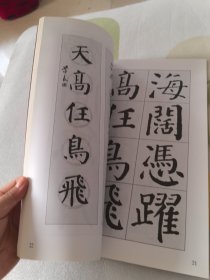 海闊憑躍
高任鳥飛
天高任鳥飛
22
21